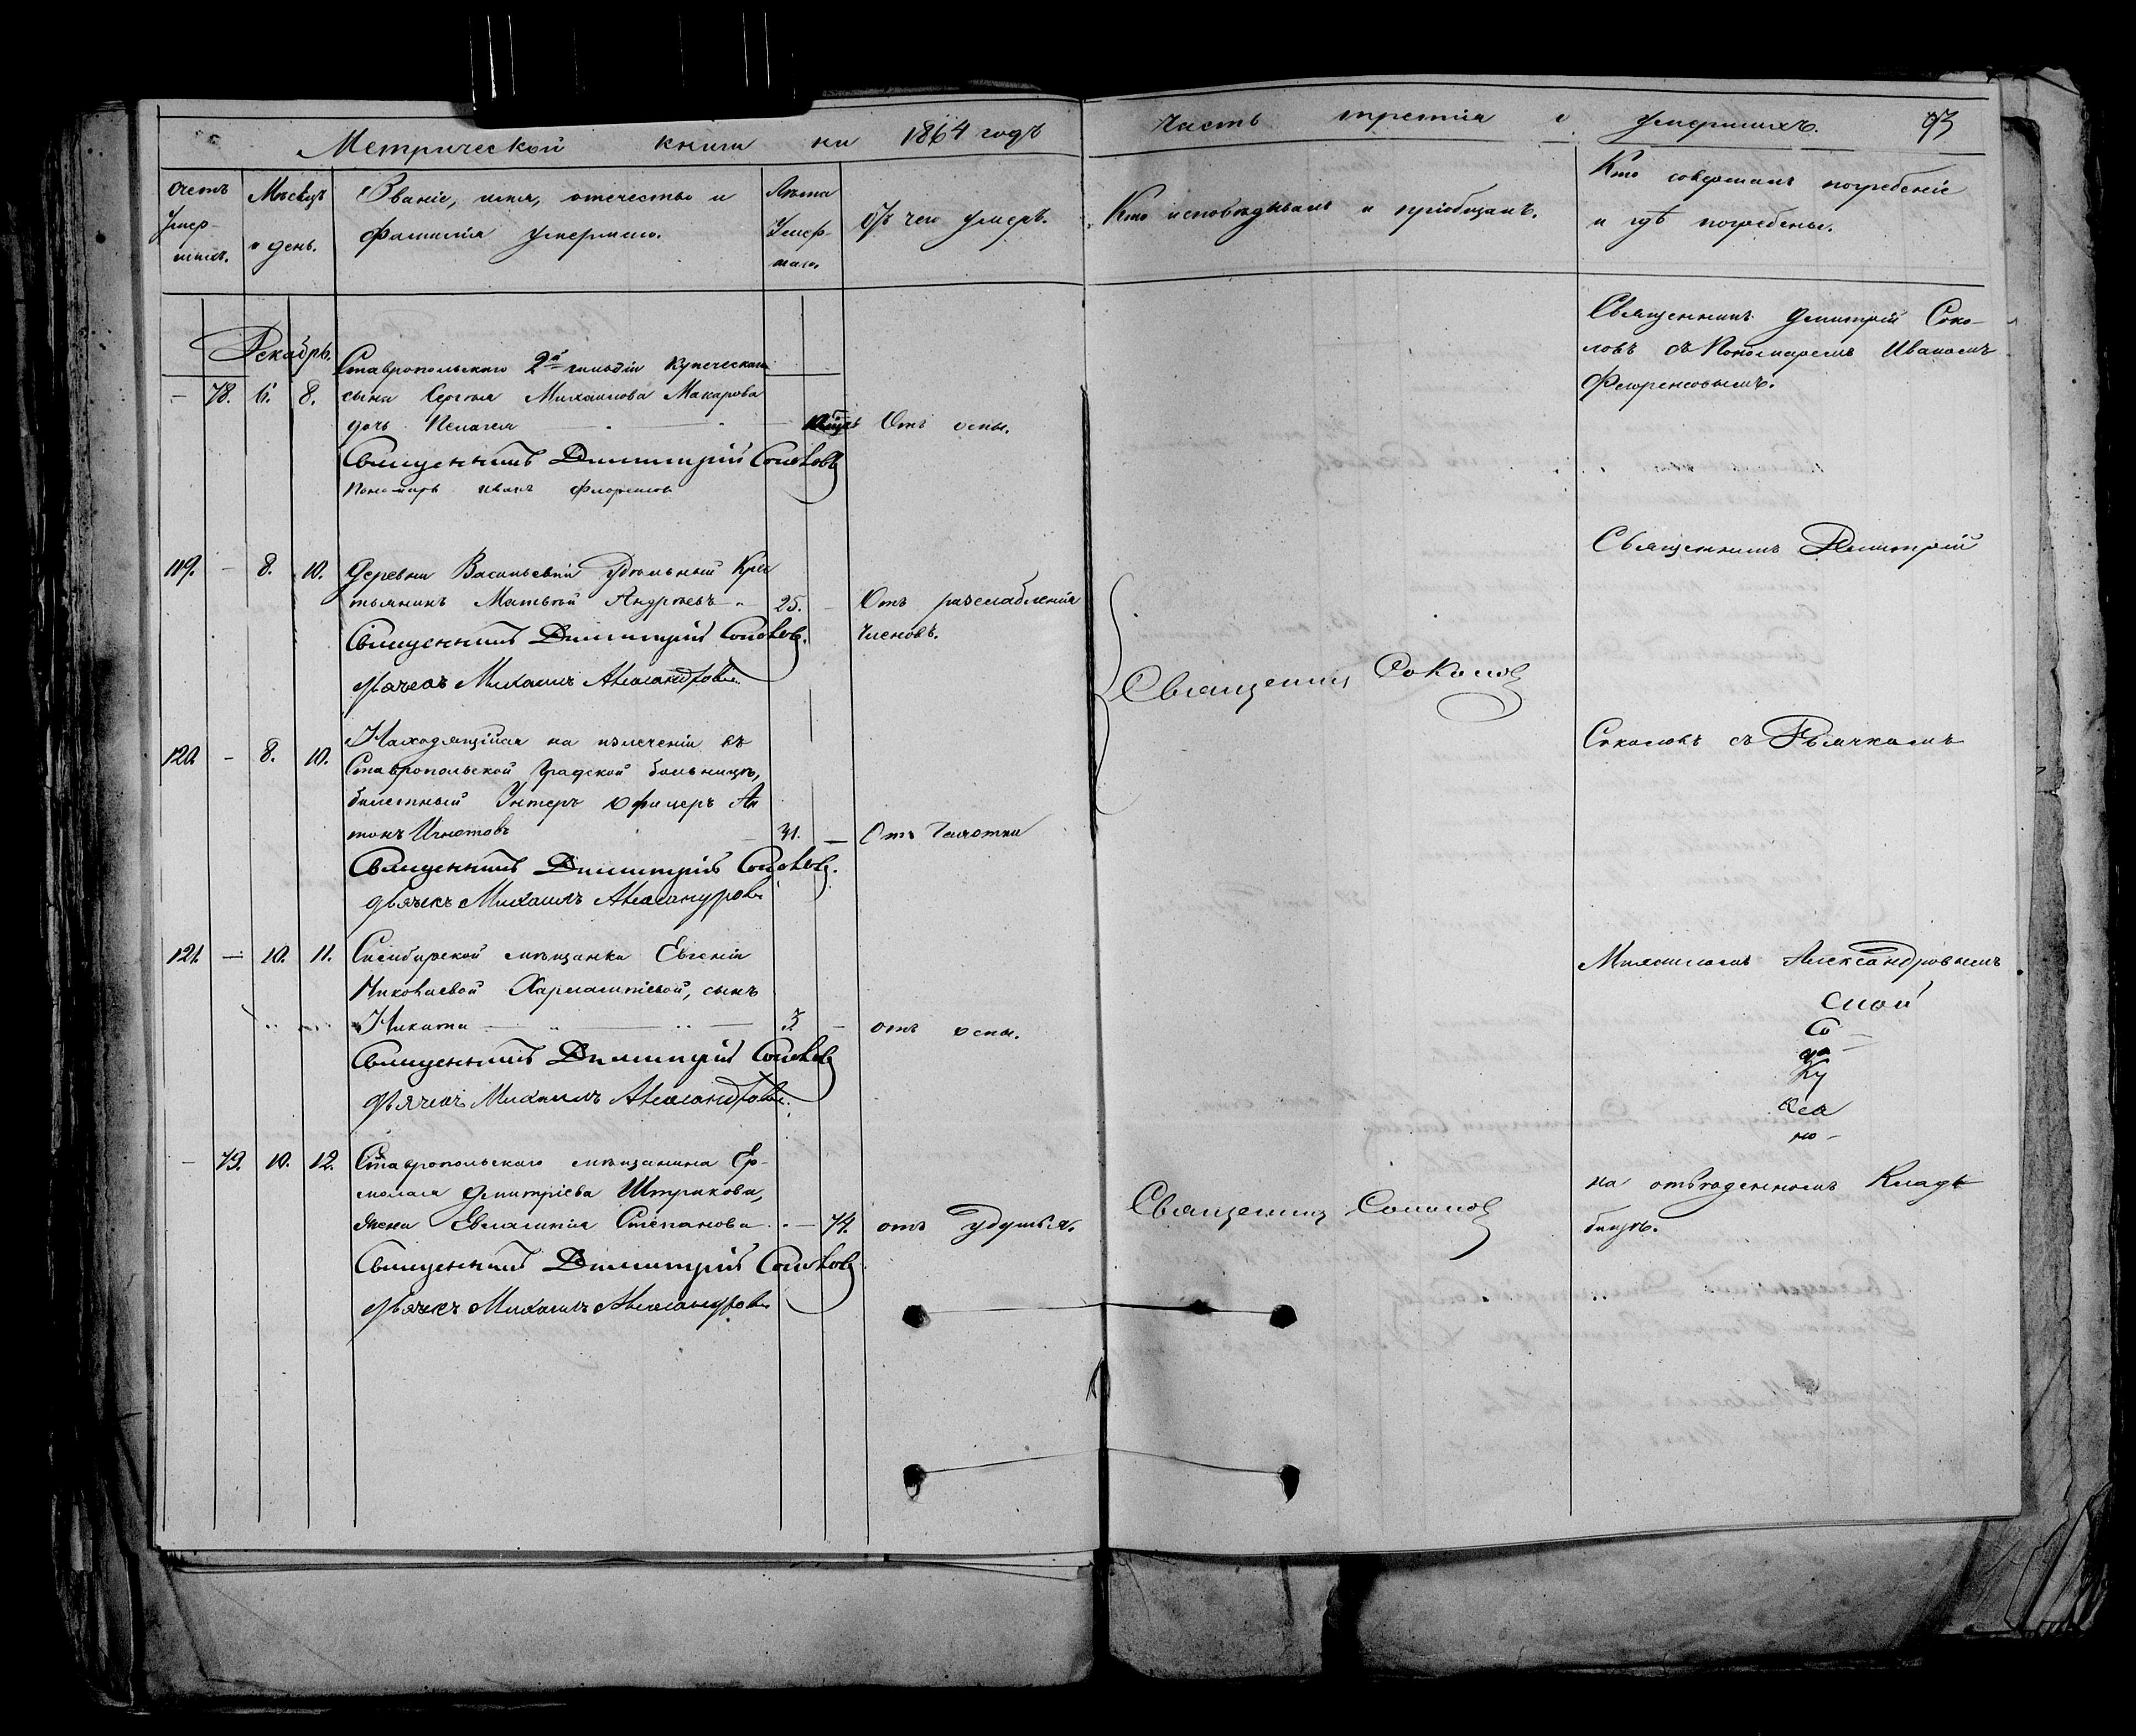 Метрической книги на 1864 годъ
Часть третия о умершихъ.
Счетъ умер-шихъ.
Мѣсяцъ и день.
Званіе, имя, отечество и
фамилія умершаго.
Лѣта умер-шаго.
Отъ чего умеръ.
Кто исповѣдывалъ и пріобщалъ.
Кто совершалъ погребеніе
и гдѣ погребены.
Декабрь.
Ставропольскаго 2й гильдіи купеческаго
— 78. 6. 8. сына Сергѣя Михаилова Макарова
дочь Пелагея Отъ оспы.
Священникъ Димитрій Соколовъ
Пономарь Иванъ
Священникъ Дмитрій Соко-
ловъ съ Пономаремъ Иваномъ
119. — 8. 10. Деревни Васильевки удѣльный Крес
тьянинъ Матвѣй Андреевъ 25. — Отъ разслабленія
членовъ.
Священникъ Димитрій Соколовъ.
Дьячекъ Михаилъ Александровъ
Священникъ Соколовъ
Священникъ Дмитрій
120. — 8. 10. Находящійся на излеченіи въ
Ставропольской Градской больницѣ,
билетный Унтеръ офицеръ Ан
тонъ Игнатовъ 31. — Отъ Чахотки
Священникъ Димитрій Соколовъ.
Дьячекъ Михаилъ Александровъ
Соколовъ съ Дьячкомъ
121. — 10. 11. Симбирской мѣщанки Евгеніи
Николаевой сынъ
Никита 3. — отъ оспы.
Священникъ Димитрій Соколовъ
Дьячекъ Михаилъ Александровъ.
Михаиломъ Александровымъ
— 79. 10. 12. Ставропольскаго мѣщанина Ер-
молая Дмитріева Штрикова,
жена Евлампія Степанова — 74. отъ удушья.
Священникъ Димитрій Соколовъ
Дьячекъ Михаилъ Александровъ
Священникъ Соколовъ
на отведенномъ Клад
бищѣ.